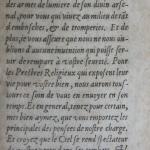 des armes de lumiere de son diuin arse-
nal, pour vous qui viuez au milieu de tãt
d'embusches, & de tromperies. Et de
plus, ie vous asseure que nous ne nous ou-
blions d'aucune inuention qui puisse ser-
uir de rempart à vostre seureté. Pour
les Prestres Religieux qui exposent leur
vie pour vostre bien, nous aurons tous-
iours ce soin de vous en enuoyer en son
temps. Et en general, tenez pour certain,
mes bien aymez, que vous emportez les
principales des pensees de nostre charge.
Et croyez que le Ciel se rend spectateur